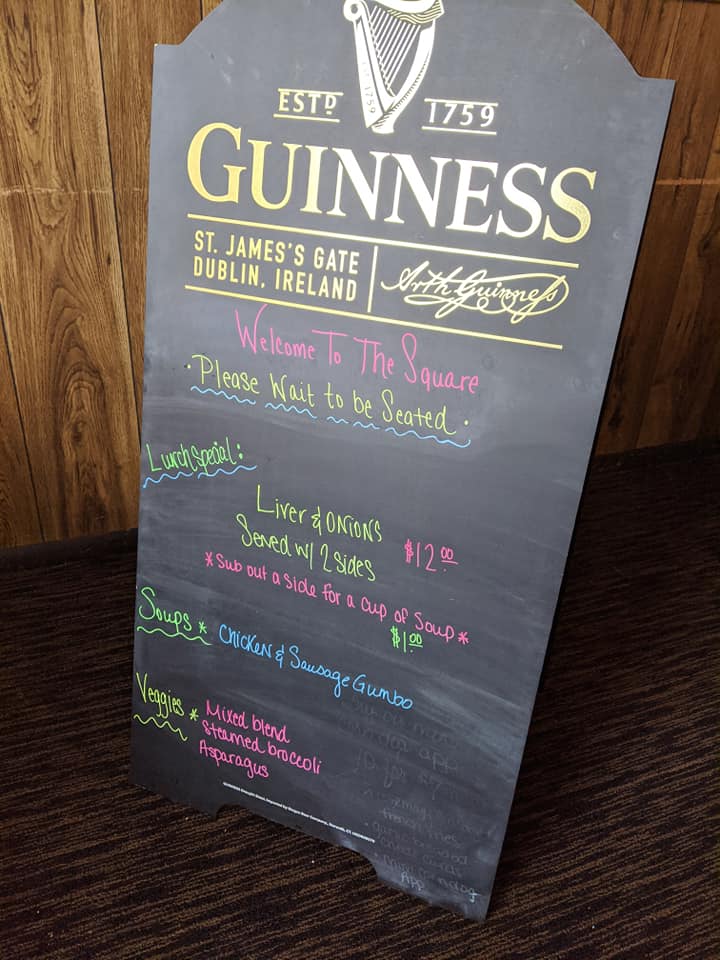 ESTD 1759
GUINNESS
ST. JAMES'S GATE
DUBLIN, IRELAND
Arth Guinness
Welcome To The Square
·Please Wait to be Seated·
Lunch Special:
Liver & ONIONS
Served w/ 2 sides $12.00
*Sub out a side for a cup of soup*
$1.00
Soups* Chicken & Sausage Gumbo
Veggies* Mixed blend
Steamed broccoli
Asparagus